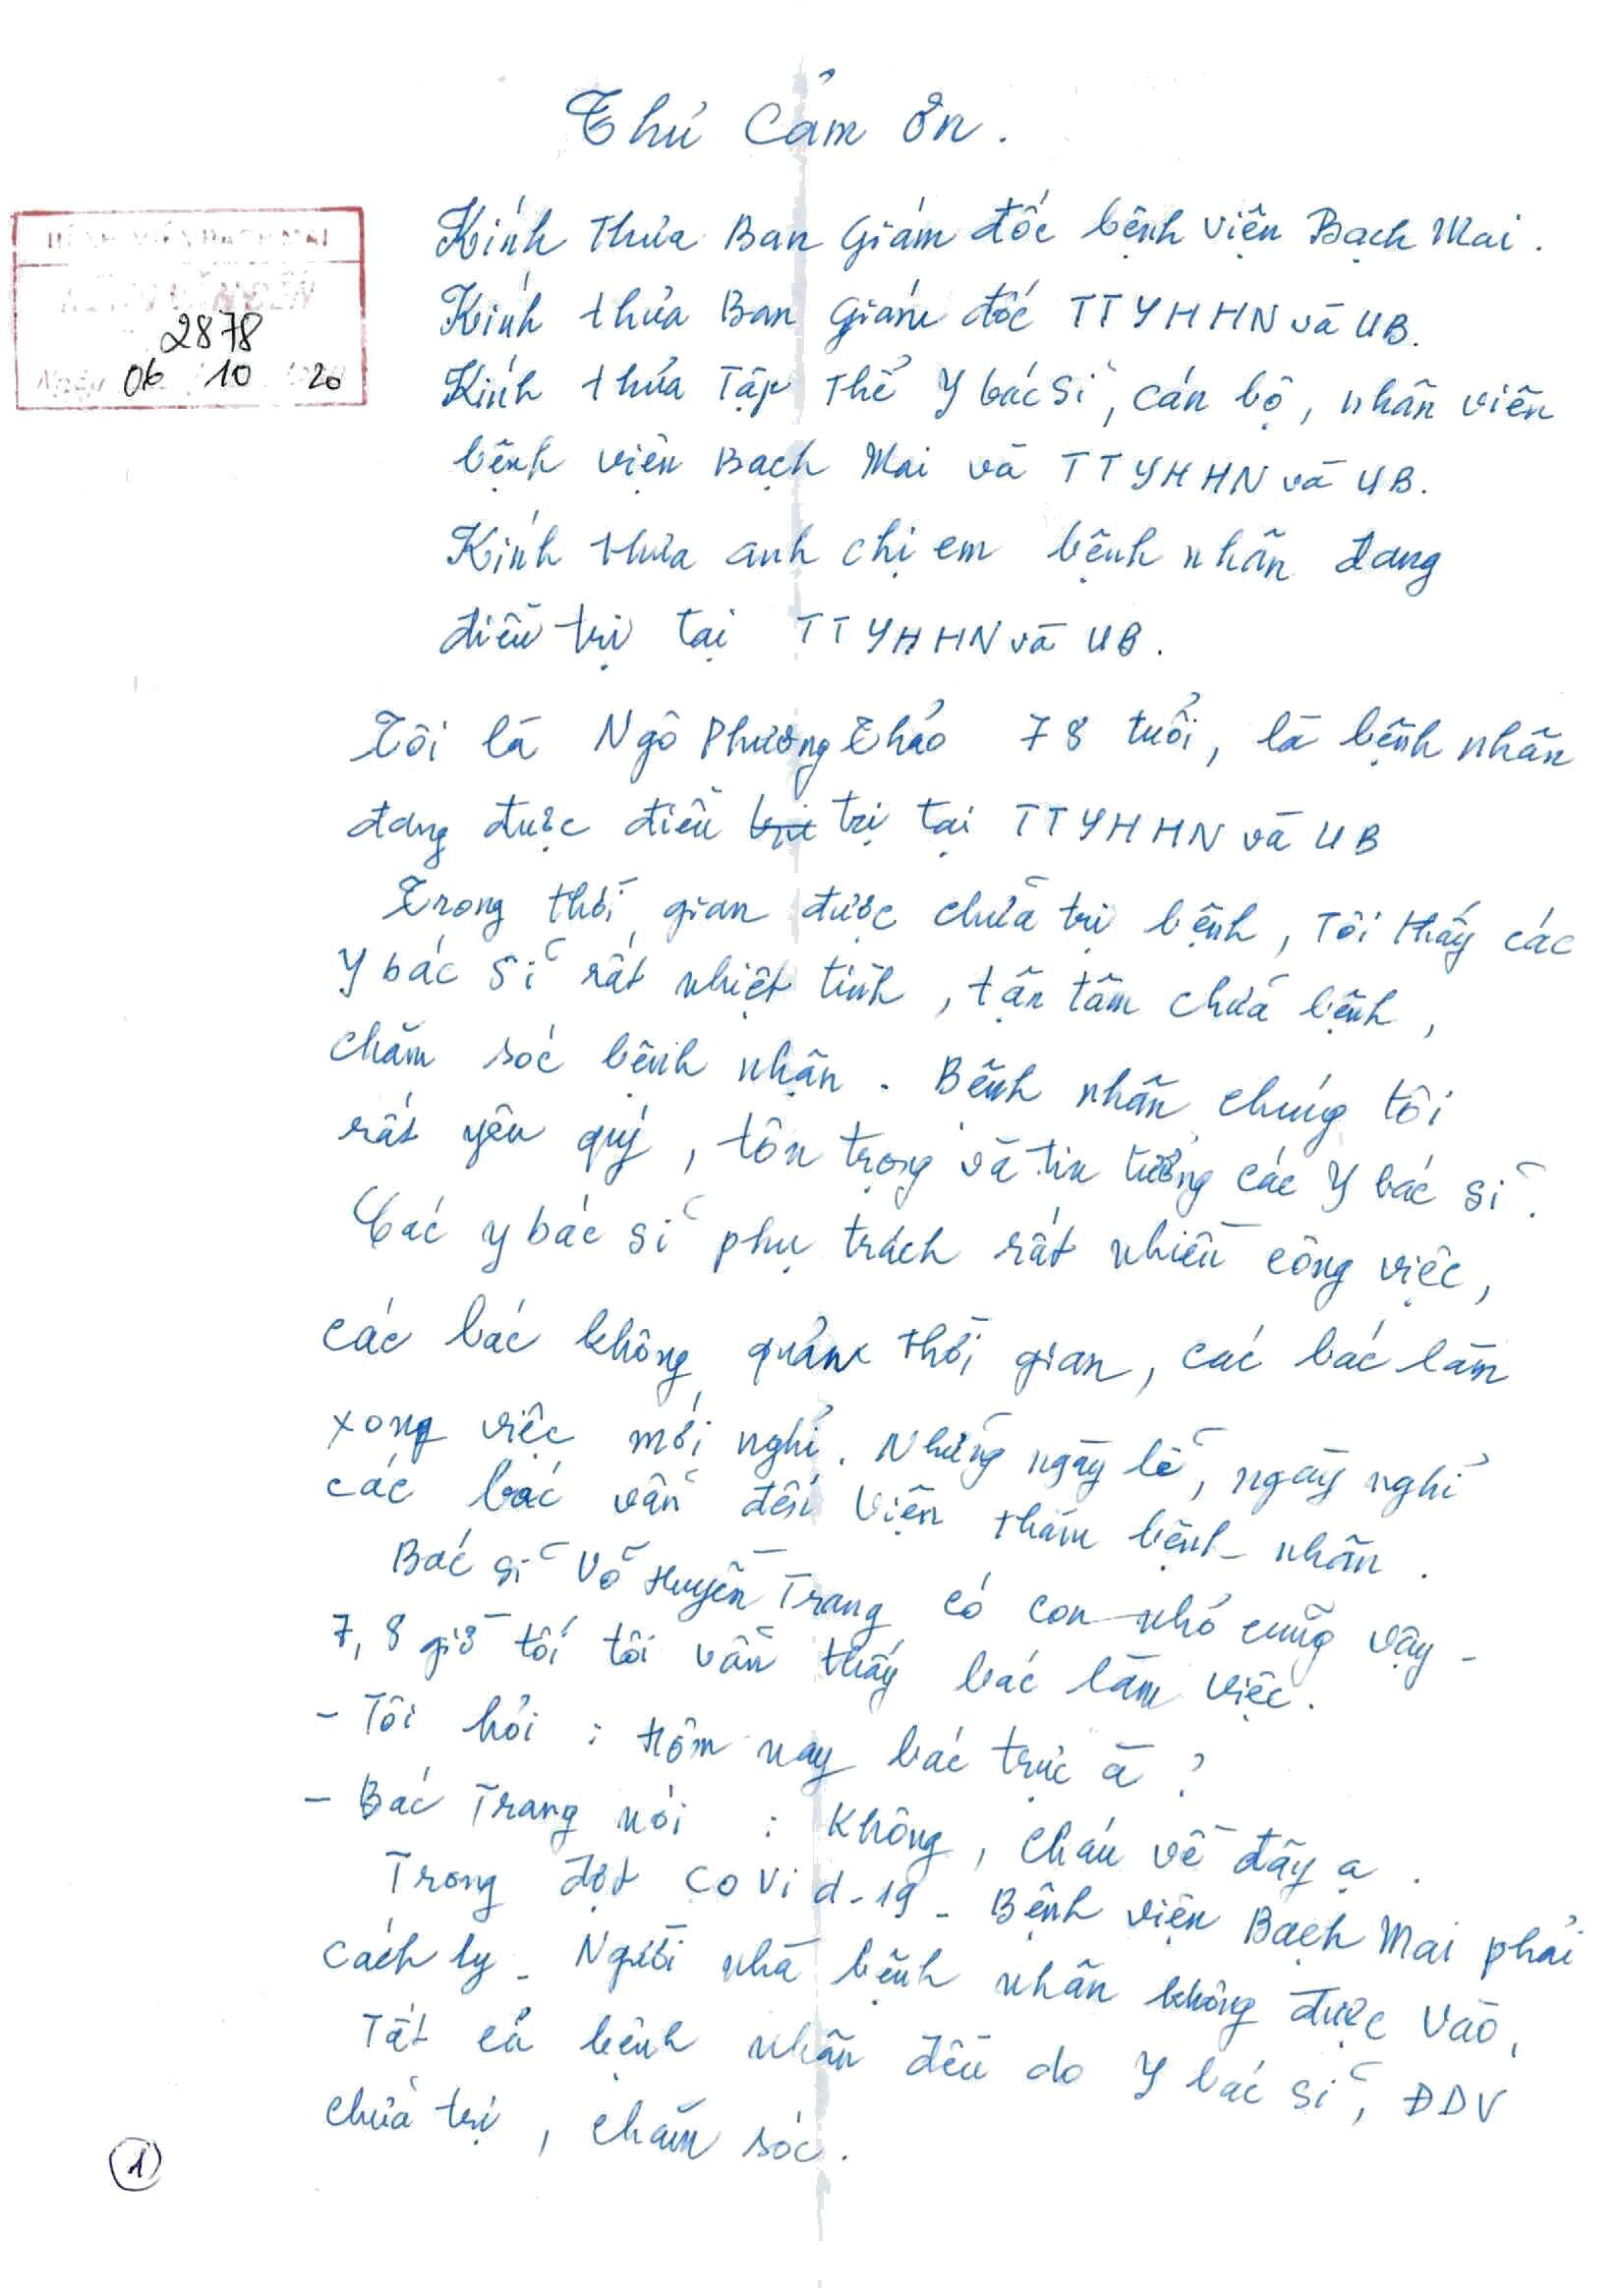 Thư cảm ơn.
2878
06 10 20
Kính thưa Ban Giám đốc bệnh viện Bạch Mai.
Kính thưa Ban Giám đốc TTYHHN và UB.
Kính thưa Tập thể Y bác sĩ, cán bộ, nhân viên
bệnh viện Bạch Mai và TTYHHN và UB.
Kính thưa anh chị em bệnh nhân đang
điều trị tại TTYHHN và UB.
Tôi là Ngô Phương Thảo 78 tuổi, là bệnh nhân
đang được điều trị tại TTYHHN và UB
Trong thời gian được chữa trị bệnh, Tôi thấy các
Y bác sĩ rất nhiệt tình, tận tâm chữa bệnh,
chăm sóc bệnh nhân. Bệnh nhân chúng tôi
rất yêu quý, tôn trọng và tin tưởng các Y bác sĩ.
Các y bác sĩ phụ trách rất nhiều công việc,
các bác không quản thời gian, các bác làm
xong việc mới nghỉ. Những ngày lễ, ngày nghỉ
các bác vẫn đến Viện thăm bệnh nhân.
Bác sĩ Võ Huyền Trang có con nhỏ cũng vậy -
7, 8 giờ tối tôi vẫn thấy bác làm việc.
- Tôi hỏi : Hôm nay bác trực à ?
- Bác Trang nói : Không, cháu về đây ạ.
Trong đợt Covid-19 - Bệnh viện Bạch Mai phải
cách ly - Người nhà bệnh nhân không được vào,
Tất cả bệnh nhân đều do Y bác sĩ, ĐDV
chữa trị, chăm sóc.
1